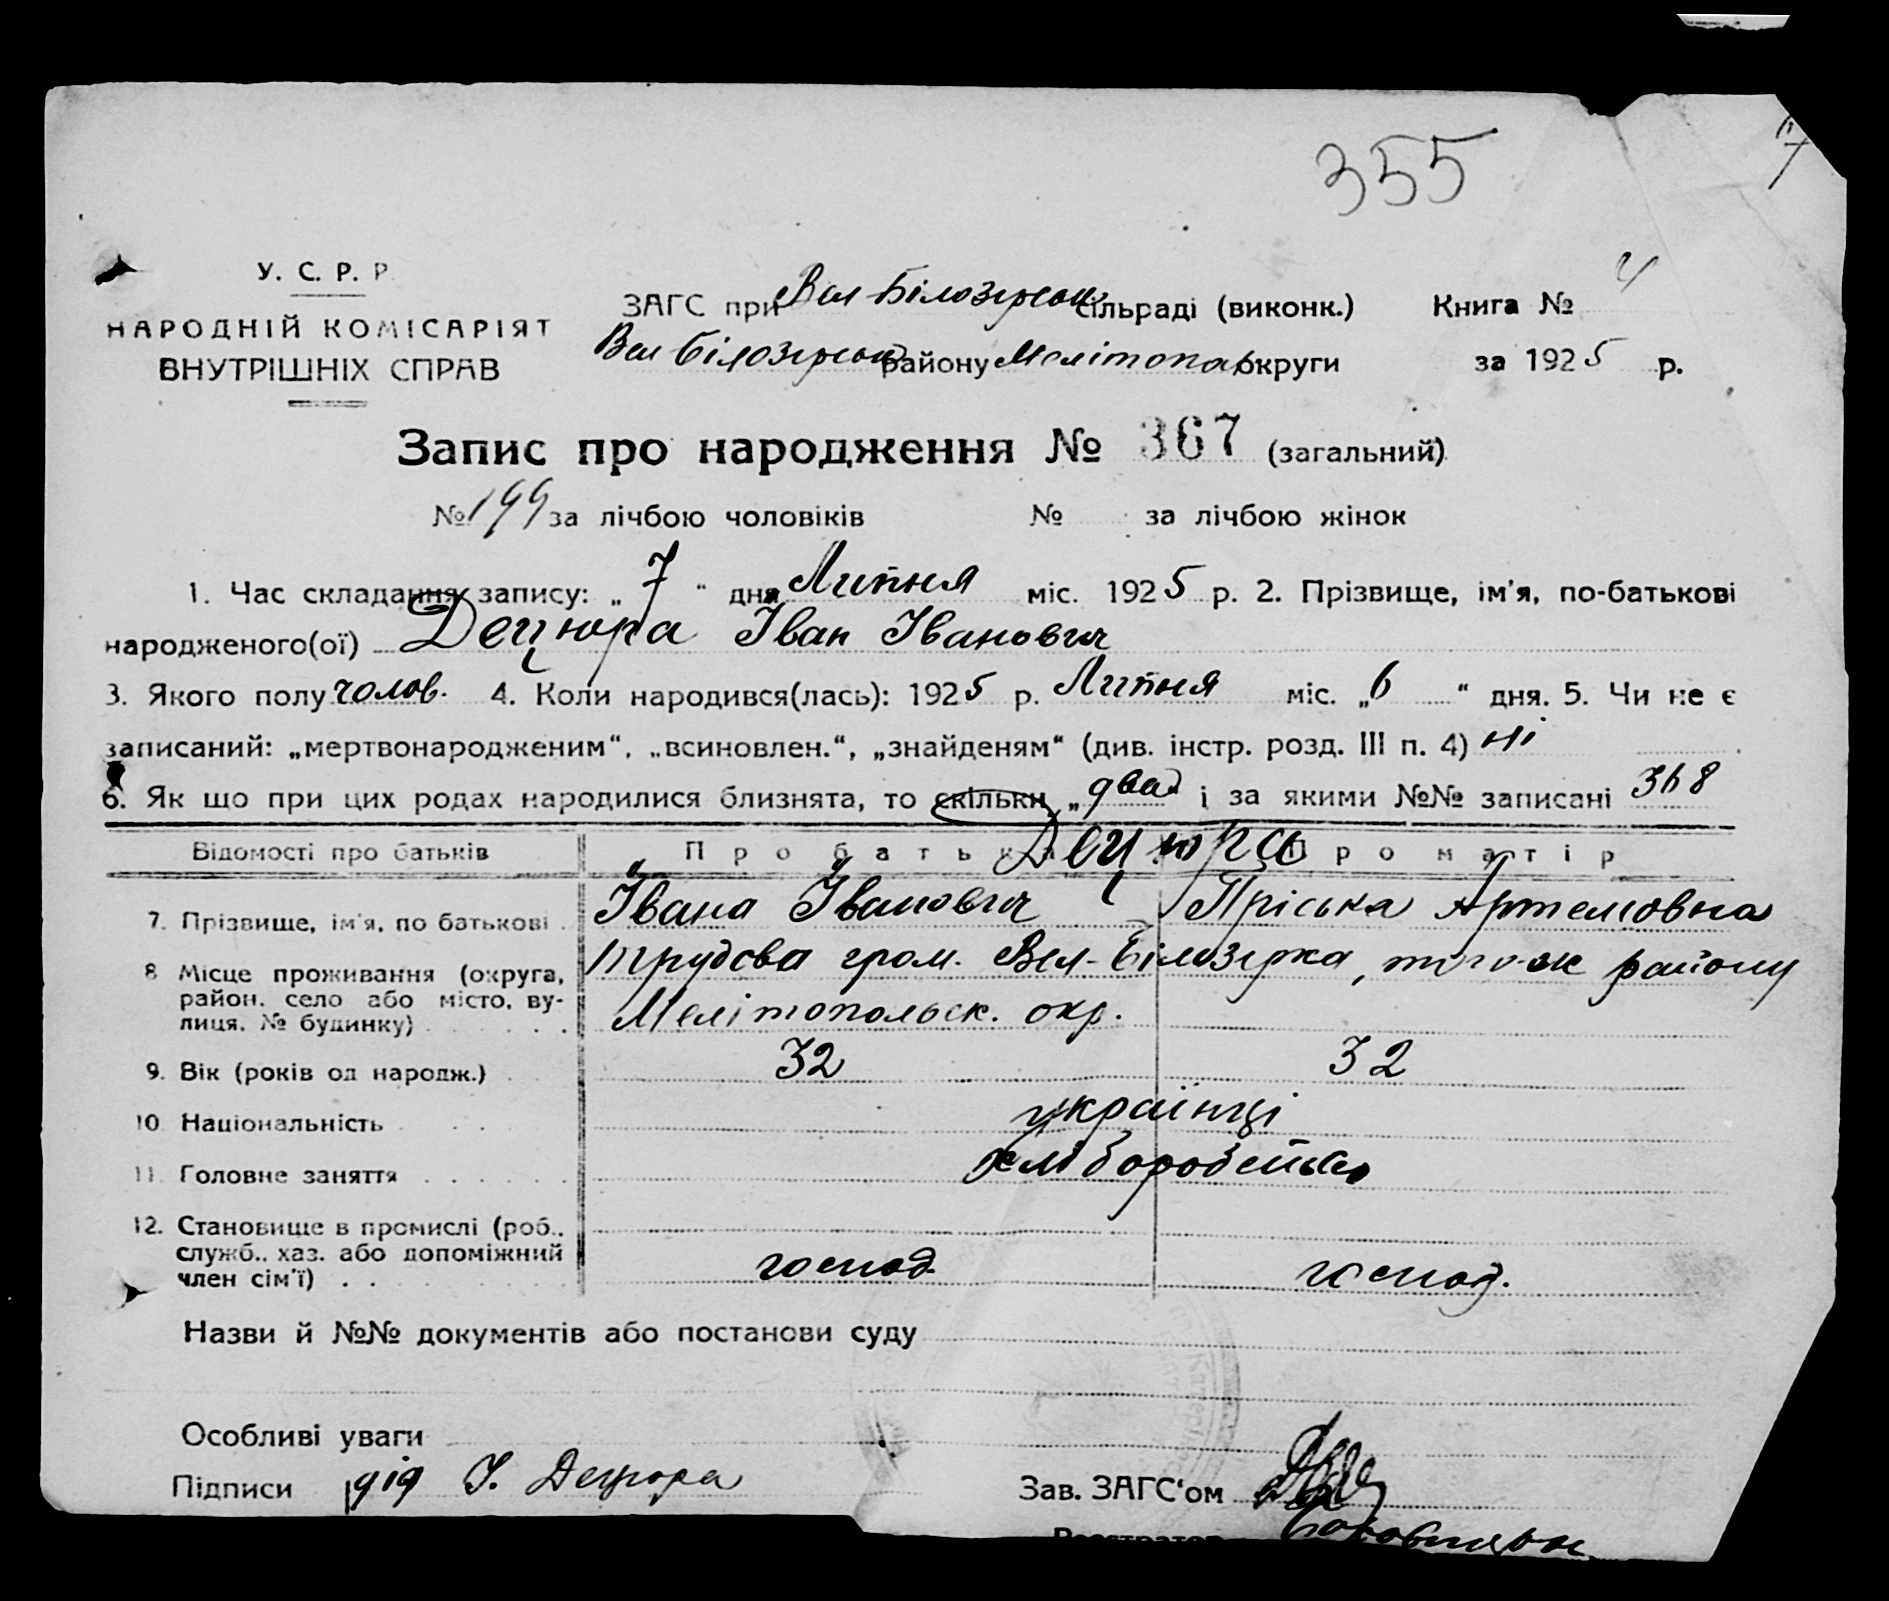 355
7
У. С. Р. Р.
НАРОДНІЙ КОМІСАРІЯТ
ВНУТРІШНІХ СПРАВ
ЗАГС при Вел Білозірськ сільраді (виконк.) Книга № 4
Вел Білозірськ району Мелітопол округи за 1925 р.
Запис про народження № 367 (загальний)
№ 199 за лічбою чоловіків № за лічбою жінок
1. Час складання запису: „ 7 “ дня Липня міс. 1925 р. 2. Прізвище, ім'я, по-батькові
народженого(ої) Децюра Іван Іванович
3. Якого полу чолов. 4. Коли народився(лась): 1925 р. Липня міс. „6 “ дня. 5. Чи не є
записаний: „мертвонародженим“, „всиновлен.“, „знайденям“ (див. інстр. розд. III п. 4) ні
6. Як що при цих родах народилися близнята, то скільки „два і за якими №№ записані 368
Відомості про батьків Про батька Про матір
Децюра
7. Прізвище, ім'я, по батькові Івана Іванович Пріська Артемовна
8 Місце проживання (округа, Трудова гром. Вел-Білозірка, того-ж району
район. село або місто, ву- Мелітопольск. окр.
лиця. № будинку)
9. Вік (років од народж.) 32 32
10 Національність українці
11. Головне заняття хліборобство
12. Становище в промислі (роб.,
служб., хаз. або допоміжний господ. господ.
член сім'ї)
Назви й №№ документів або постанови суду
Особливі уваги
Підписи дід І. Децюра Зав. ЗАГС‘ом
Реєстратор